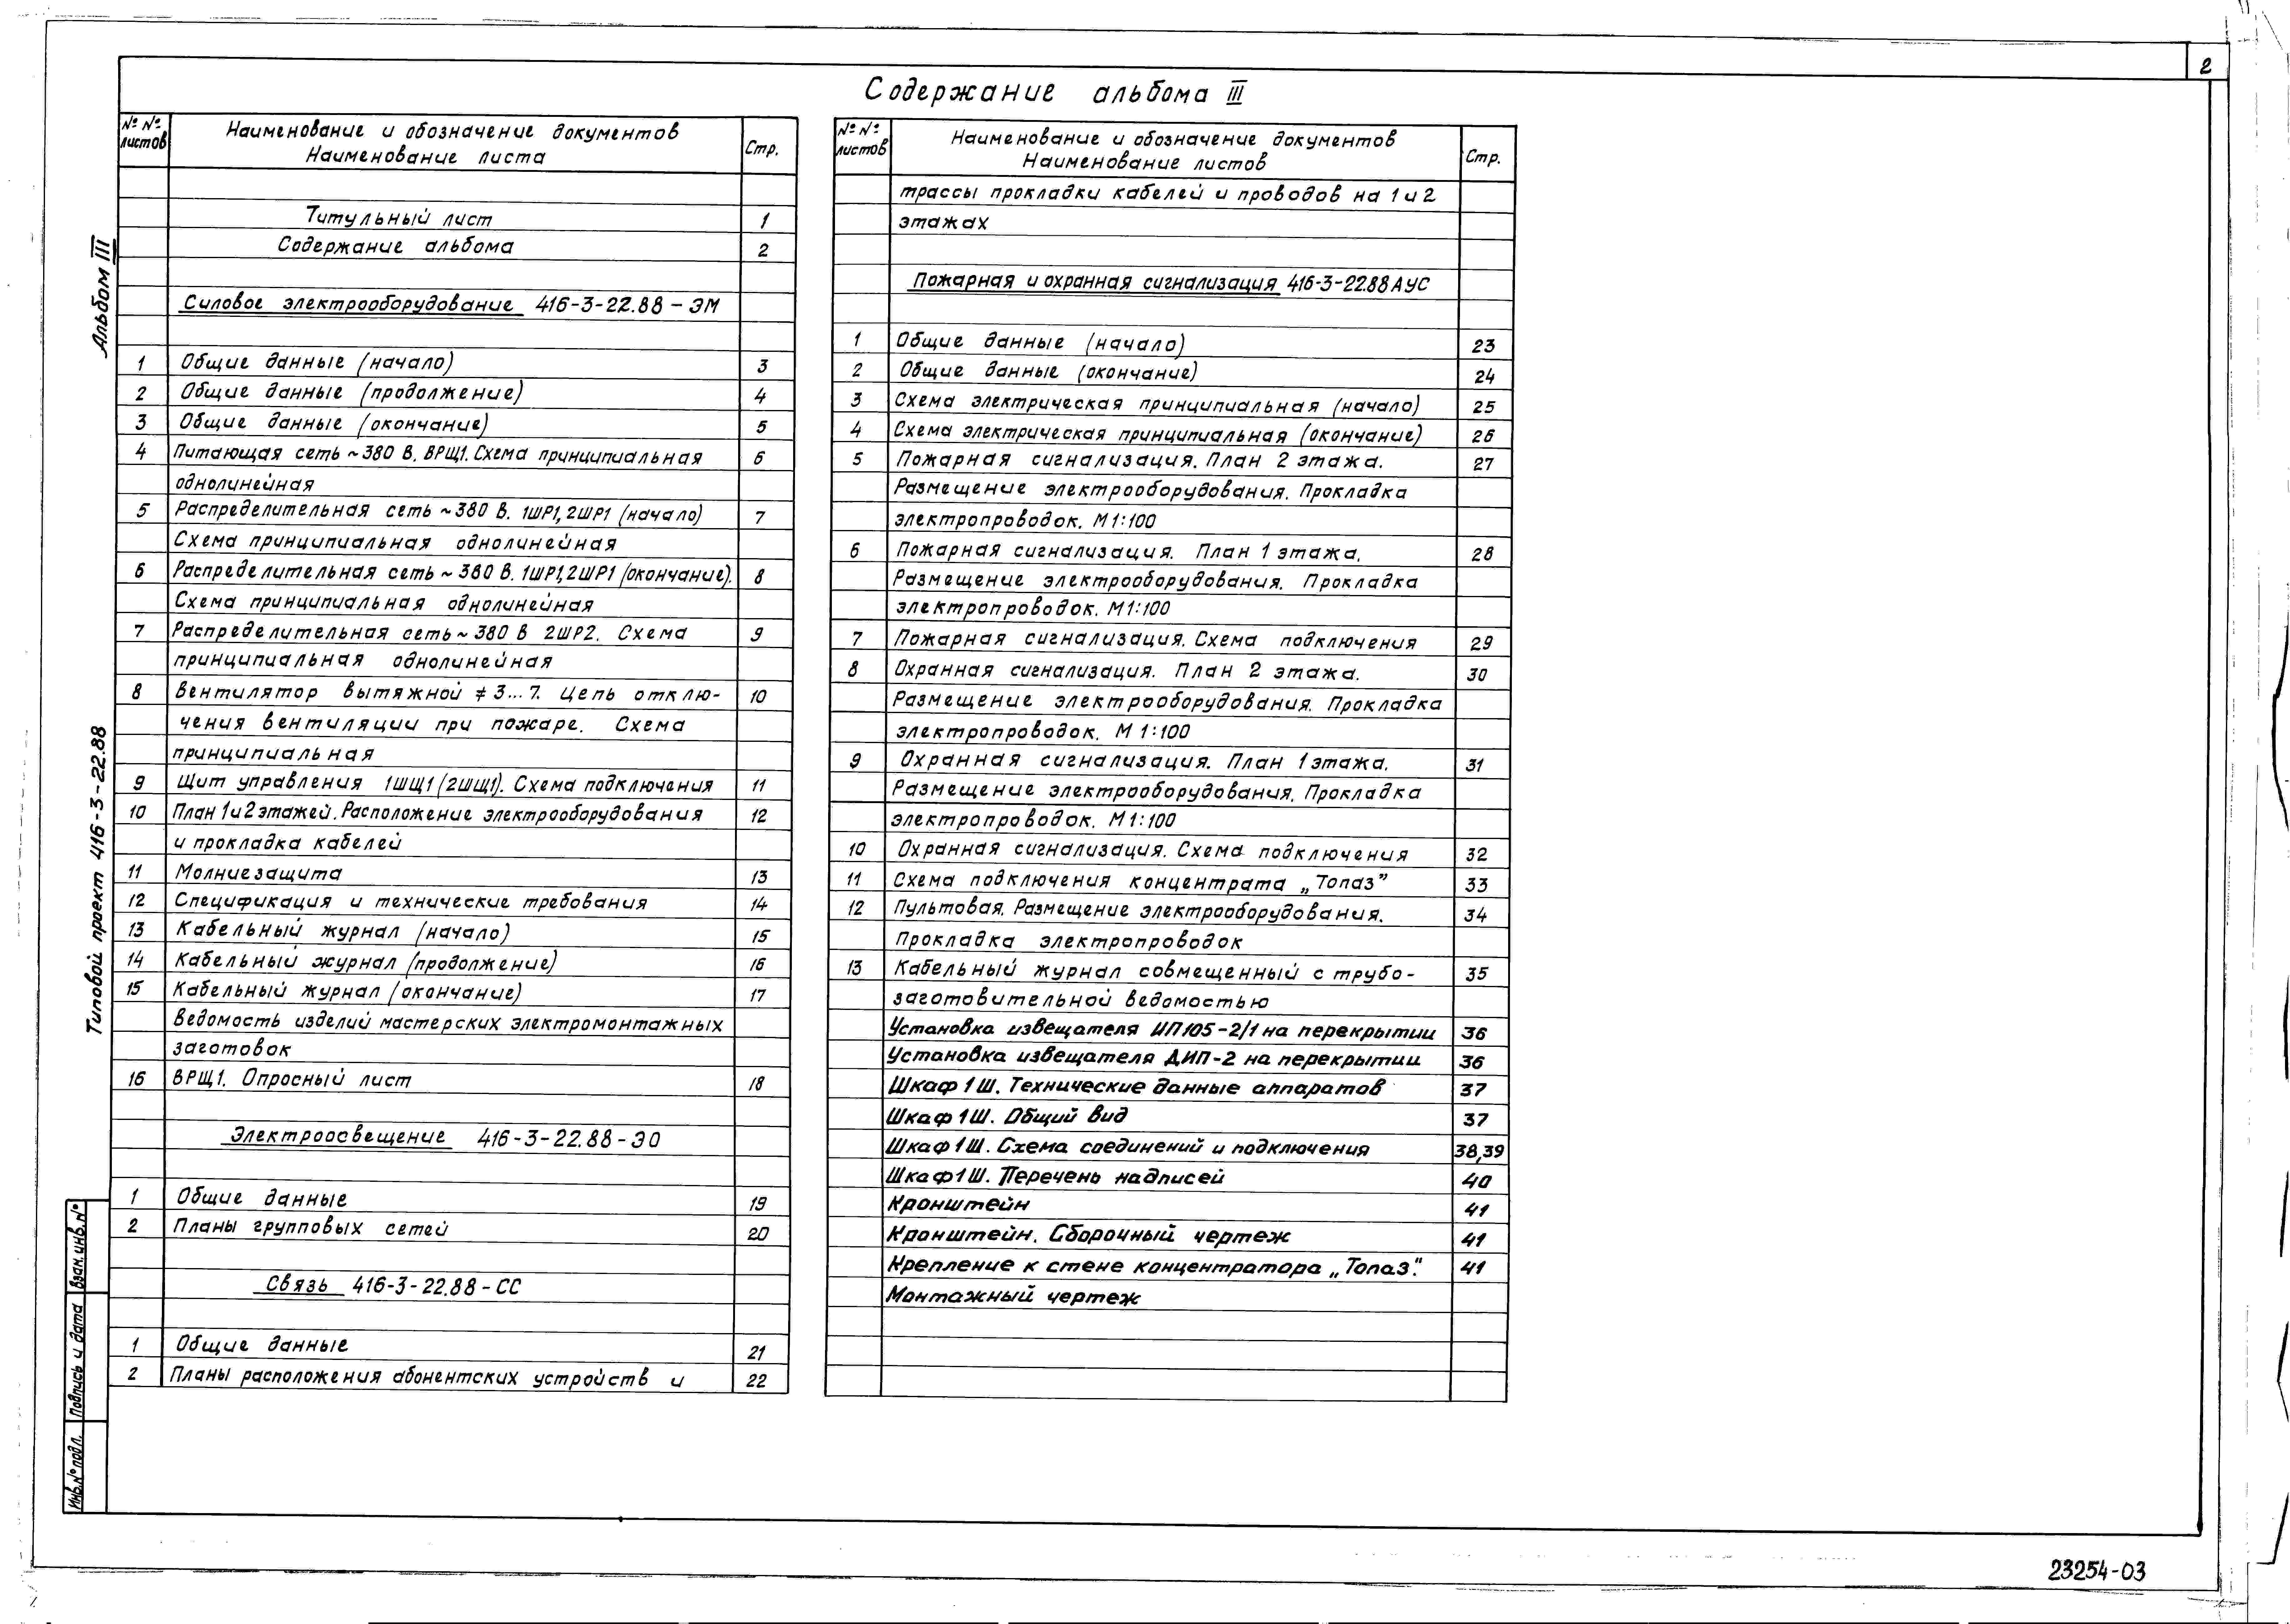 2
Содержание альбома III
№ №
листов
Наименование и обозначение документов
Наименование листа
Стр.
Титульный лист 1
Содержание альбома 2
Силовое электрооборудование 416-3-22.88-ЭМ
1 Общие данные (начало) 3
2 Общие данные (продолжение) 4
3 Общие данные (окончание) 5
4 Питающая сеть ~380 В. ВРЩ1. Схема принципиальная 6
однолинейная
5 Распределительная сеть ~380 В. 1ШР1, 2ШР1 (начало) 7
Схема принципиальная однолинейная
6 Распределительная сеть ~380 В. 1ШР1, 2ШР1 (окончание). 8
Схема принципиальная однолинейная
7 Распределительная сеть ~380 В 2ШР2. Схема 9
принципиальная однолинейная
8 Вентилятор вытяжной ≠ 3...7. Цепь отклю- 10
чения вентиляции при пожаре. Схема
принципиальная
9 Щит управления 1ШЩ1 (2ШЩ1). Схема подключения 11
10 План 1 и 2 этажей. Расположение электрооборудования 12
и прокладка кабелей
11 Молниезащита 13
12 Спецификация и технические требования 14
13 Кабельный журнал (начало) 15
14 Кабельный журнал (продолжение) 16
15 Кабельный журнал (окончание) 17
Ведомость изделий мастерских электромонтажных
заготовок
16 ВРЩ1. Опросный лист 18
Электроосвещение 416-3-22.88-ЭО
1 Общие данные 19
2 Планы групповых сетей 20
Связь 416-3-22.88-СС
1 Общие данные 21
2 Планы расположения абонентских устройств и 22
№ №
листов
Наименование и обозначение документов
Наименование листов
Стр.
трассы прокладки кабелей и проводов на 1 и 2
этажах
Пожарная и охранная сигнализация 416-3-22.88 АУС
1 Общие данные (начало) 23
2 Общие данные (окончание) 24
3 Схема электрическая принципиальная (начало) 25
4 Схема электрическая принципиальная (окончание) 26
5 Пожарная сигнализация. План 2 этажа. 27
Размещение электрооборудования. Прокладка
электропроводок. М 1:100
6 Пожарная сигнализация. План 1 этажа. 28
Размещение электрооборудования. Прокладка
электропроводок. М 1:100
7 Пожарная сигнализация. Схема подключения 29
8 Охранная сигнализация. План 2 этажа. 30
Размещение электрооборудования. Прокладка
электропроводок. М 1:100
9 Охранная сигнализация. План 1 этажа. 31
Размещение электрооборудования. Прокладка
электропроводок. М 1:100
10 Охранная сигнализация. Схема подключения 32
11 Схема подключения концентрата „Топаз” 33
12 Пультовая. Размещение электрооборудования. 34
Прокладка электропроводок
13 Кабельный журнал совмещенный с трубо- 35
заготовительной ведомостью
Установка извещателя ИП105-2/1 на перекрытии 36
Установка извещателя ДИП-2 на перекрытии 36
Шкаф 1Ш. Технические данные аппаратов 37
Шкаф 1Ш. Общий вид 37
Шкаф 1Ш. Схема соединений и подключения 38,39
Шкаф 1Ш. Перечень надписей 40
Кронштейн 41
Кронштейн. Сборочный чертеж 41
Крепление к стене концентратора „Топаз". 41
Монтажный чертеж
Альбом III
Типовой проект 416-3-22.88
Взам. инв. №
Подпись и дата
Инв. № подл.
23254-03